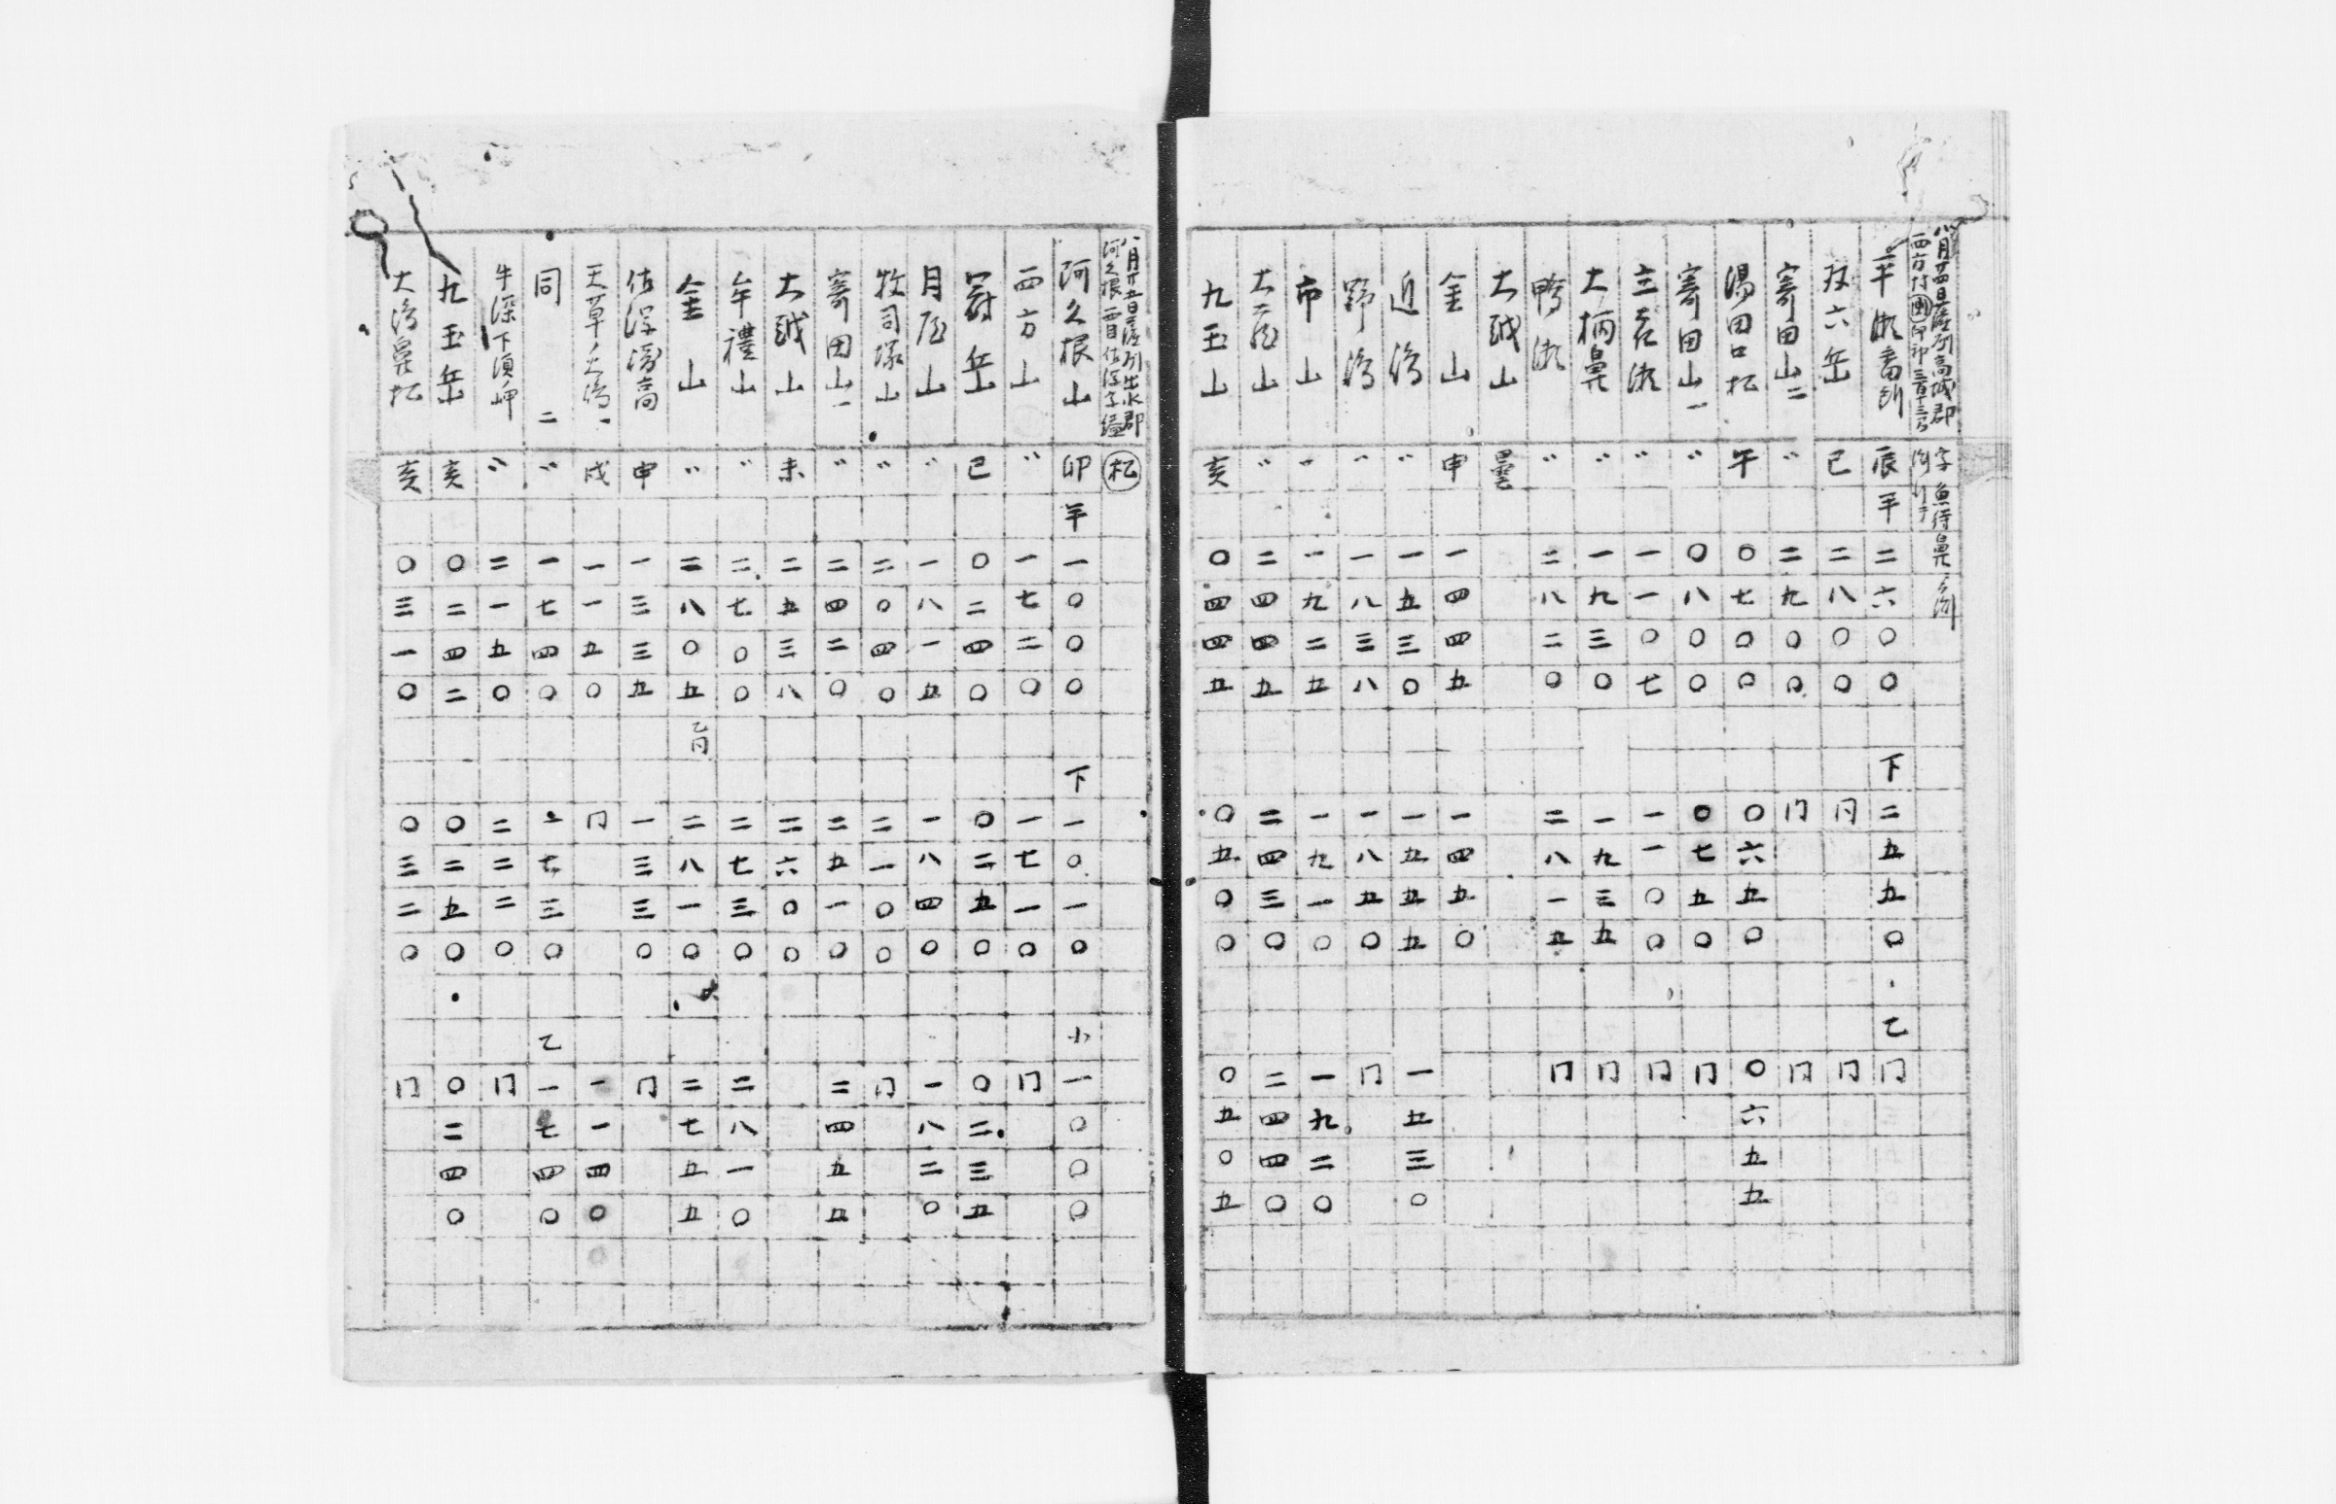 八月廿四日薩州高城郡
西方村
辰 平 二六〇〇 下 二五五〇 乙 冂
双六岳 巳 二八〇〇 冂 冂
寄田山二 〃 二九〇〇 冂 冂
湯田口松 午 〇七〇〇 〇六五〇 〇六五五
寄田山一 〃 〇八〇〇 〇七五〇 冂
立岩瀬 〃 一一〇七 一一〇〇 冂
大柄鼻 〃 一九三〇 一九三五 冂
鴨瀬 〃 二八二〇 二八一五 冂
大𢦏山 曇
金山 申 一四四五 一四五〇
近湾 〃 一五三〇 一五五五 一五三〇
野湾 〃 一八三八 一八五〇 冂
市山 〃 一九二五 一九一〇 一九二〇
山 〃 二四四五 二四三〇 二四四〇
九玉山 亥 〇四四五 〇五〇〇 〇五〇五
八月廿五日薩州出水郡
阿久根 松
阿久根山 卯 平 一〇〇〇 下 一〇一〇 小 一〇〇〇
西方山 〃 一七二〇 一七一〇 冂
冠岳 巳 〇二四〇 〇二五〇 〇二三五
月屋山 〃 一八一五 一八四〇 一八二〇
牧司塚山 〃 二〇四〇 二一〇〇 冂
寄田山一 〃 二四二〇 二五一〇 二四五五
大𢦏山 未 二五三八 二六〇〇
牟禮山 〃 二七〇〇 二七三〇 二八一〇
金山 〃 二八〇五 乙冂 二八一〇 二七五五
申 一三三五 一三三〇 冂
天草大湾一 戌 一一五〇 冂 一一四〇
同 二 〃 一七四〇 一七三〇 乙 一七四〇
牛深下須岬 〃 二一五〇 二二二〇 冂
九玉岳 亥 〇二四二 〇二五〇 〇二四〇
大湾鼻松 亥 〇三一〇 〇三二〇 冂